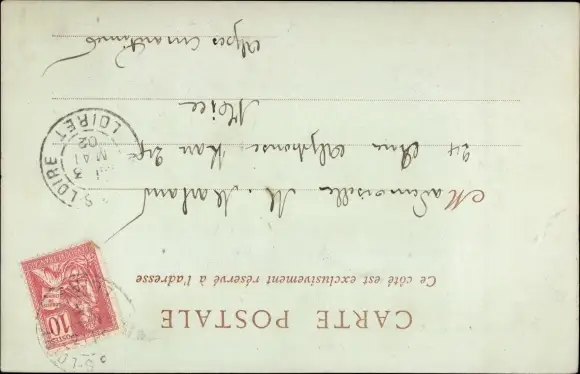 CARTE POSTALE
Ce côté est exclusivement réservé à l'adresse
Mademoiselle M.
24 Rue Alphonse Karr
Nice
Alpes Maritimes
10
S-LOIRE
3
MAI
02
LOIRET